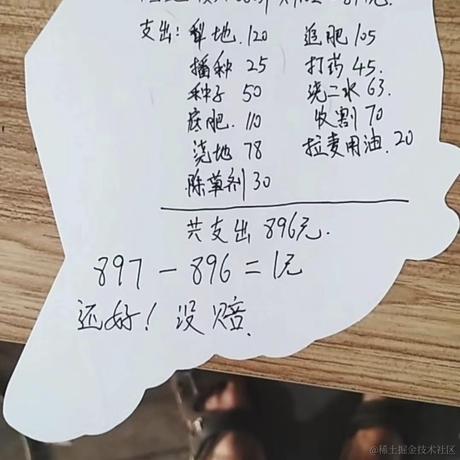 支出: 犁地.120 追肥105
播种 25 打药45.
种子 50 浇二水63.
底肥.110 收割70
浇地 78 拉麦用油.20
除草剂30
共支出896元.
897-896=1元
还好!没赔.
@稀土掘金技术社区